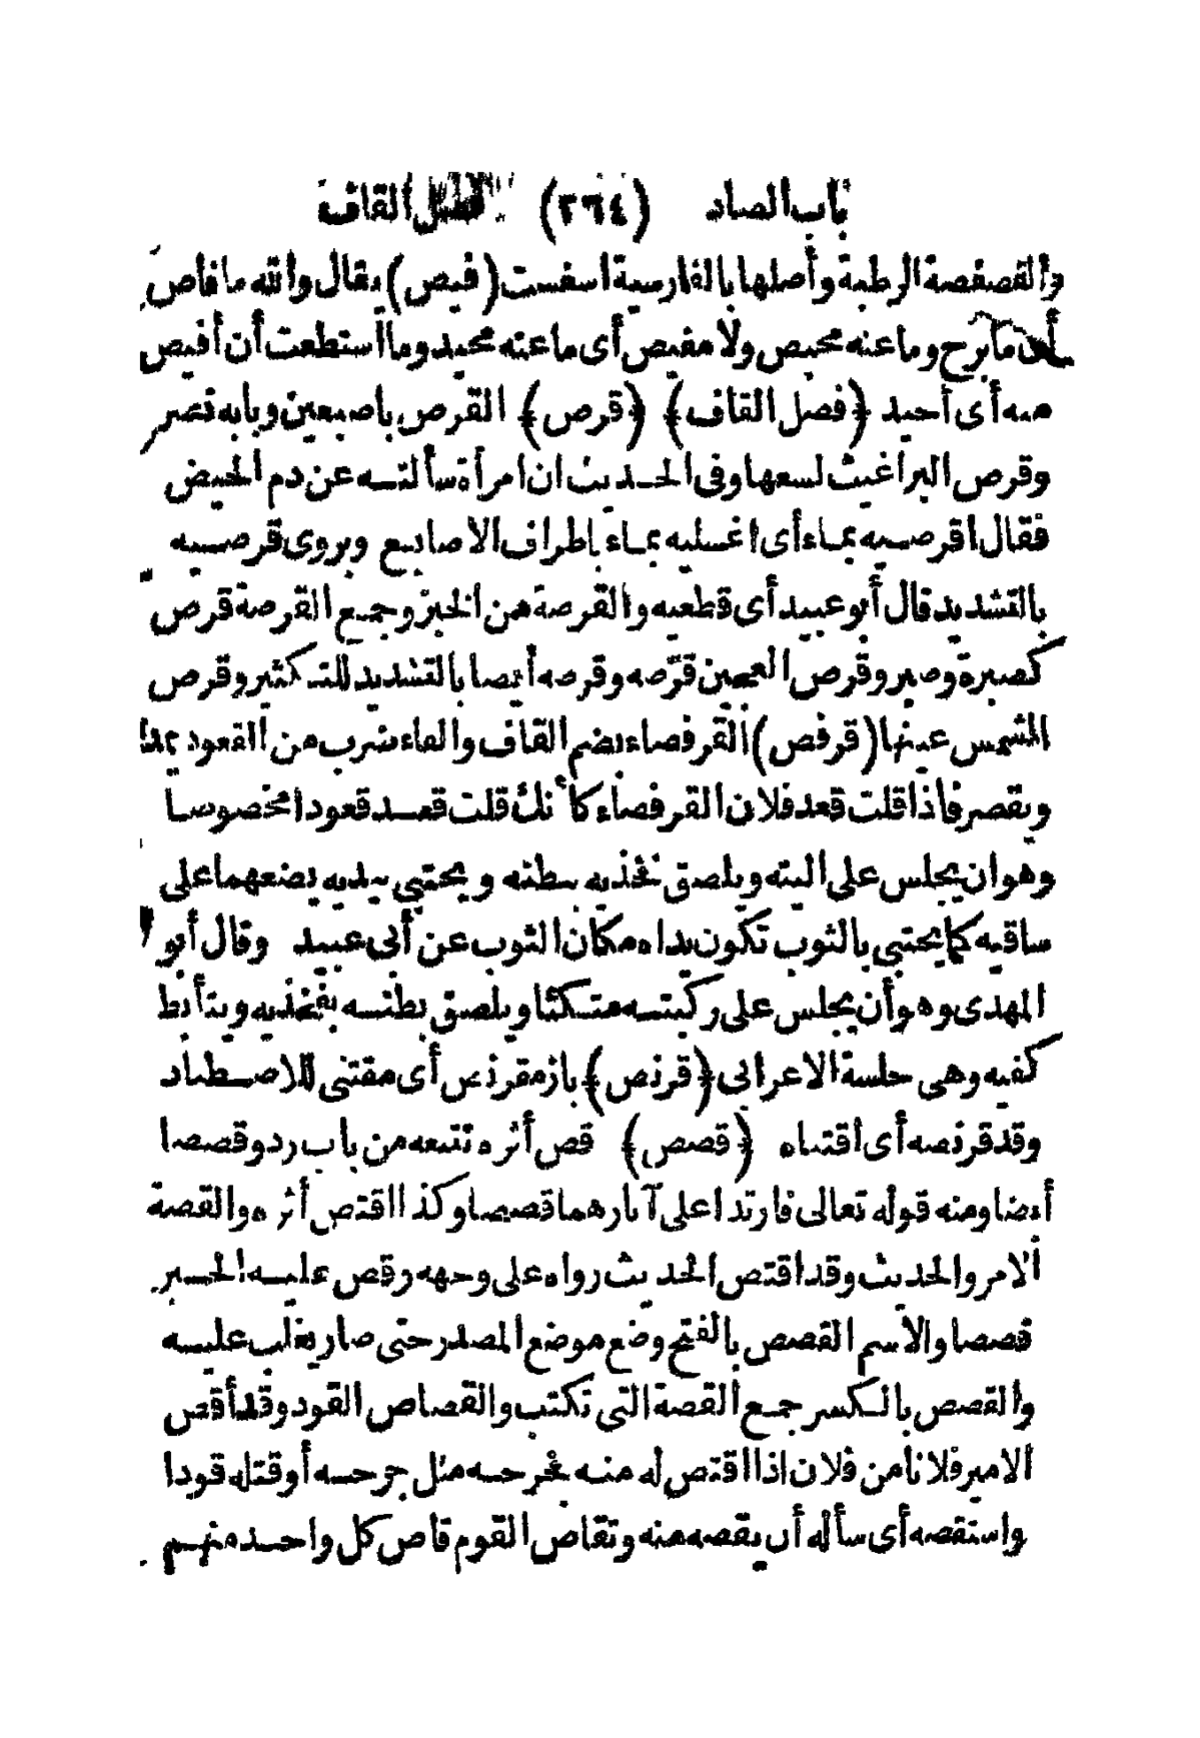 باب الصاد (٢٦٤) فصل القاف
والفصفصة الرطبة وأصلها بالفارسية اسفست (فيص) يقال والله ما فاص
أى ما برح وما عنه محيص ولا مفيص أى ما عنه محيد وما استطعت أن أفيص
منه أى أحيد ﴿فصل القاف﴾ ﴿قرص﴾ القرص باصبعين وبابه نصر
وقرص البراغيث لسعها وفى الحديث ان امرأة سألته عن دم الحيض
فقال اقرصيه بماء أى اغسليه بماء باطراف الاصابع ويروى قرصيه
بالتشديد قال أبو عبيد أى قطعيه والقرصة من الخبز وجمع القرصة قرص
كصبرة وصبر وقرص العجين قرّصه وقرصه أيضا بالتشديد للتكثير وقرص
الشمس عينها (قرفص) القرفصاء بضم القاف والفاء ضرب من القعود يمد
ويقصر فاذا قلت قعد فلان القرفصاء كأنك قلت قعد قعودا مخصوصا
وهو ان يجلس على اليته ويلصق فخذيه ببطنه ويحتبى بيديه يضعهما على
ساقيه كما يحتبى بالثوب تكون يداه مكان الثوب عن أبى عبيد وقال أبو
المهدى وهو أن يجلس على ركبتيه متكئا ويلصق بطنه بفخذيه ويتأبط
كفيه وهى جلسة الاعرابى ﴿قرنص﴾ باز مقرنص أى مقتنى للاصطياد
وقد قرنصه أى اقتناه ﴿قصص﴾ قص أثره تتبعه من باب رد وقصصا
أيضا ومنه قوله تعالى فارتدا على آثارهما قصصا وكذا اقتص أثره والقصة
الامر والحديث وقد اقتص الحديث رواه على وجهه وقص عليه الخبر
قصصا والاسم القصص بالفتح وضع موضع المصدر حتى صار يغلب عليه
والقصص بالكسر جمع القصة التى تكتب والقصاص القود وقد أقص
الامير فلانا من فلان اذا اقتص له منه فجرحه مثل جرحه أو قتله قودا
واستقصه أى سأله أن يقصه منه وتقاص القوم قاص كل واحد منهم